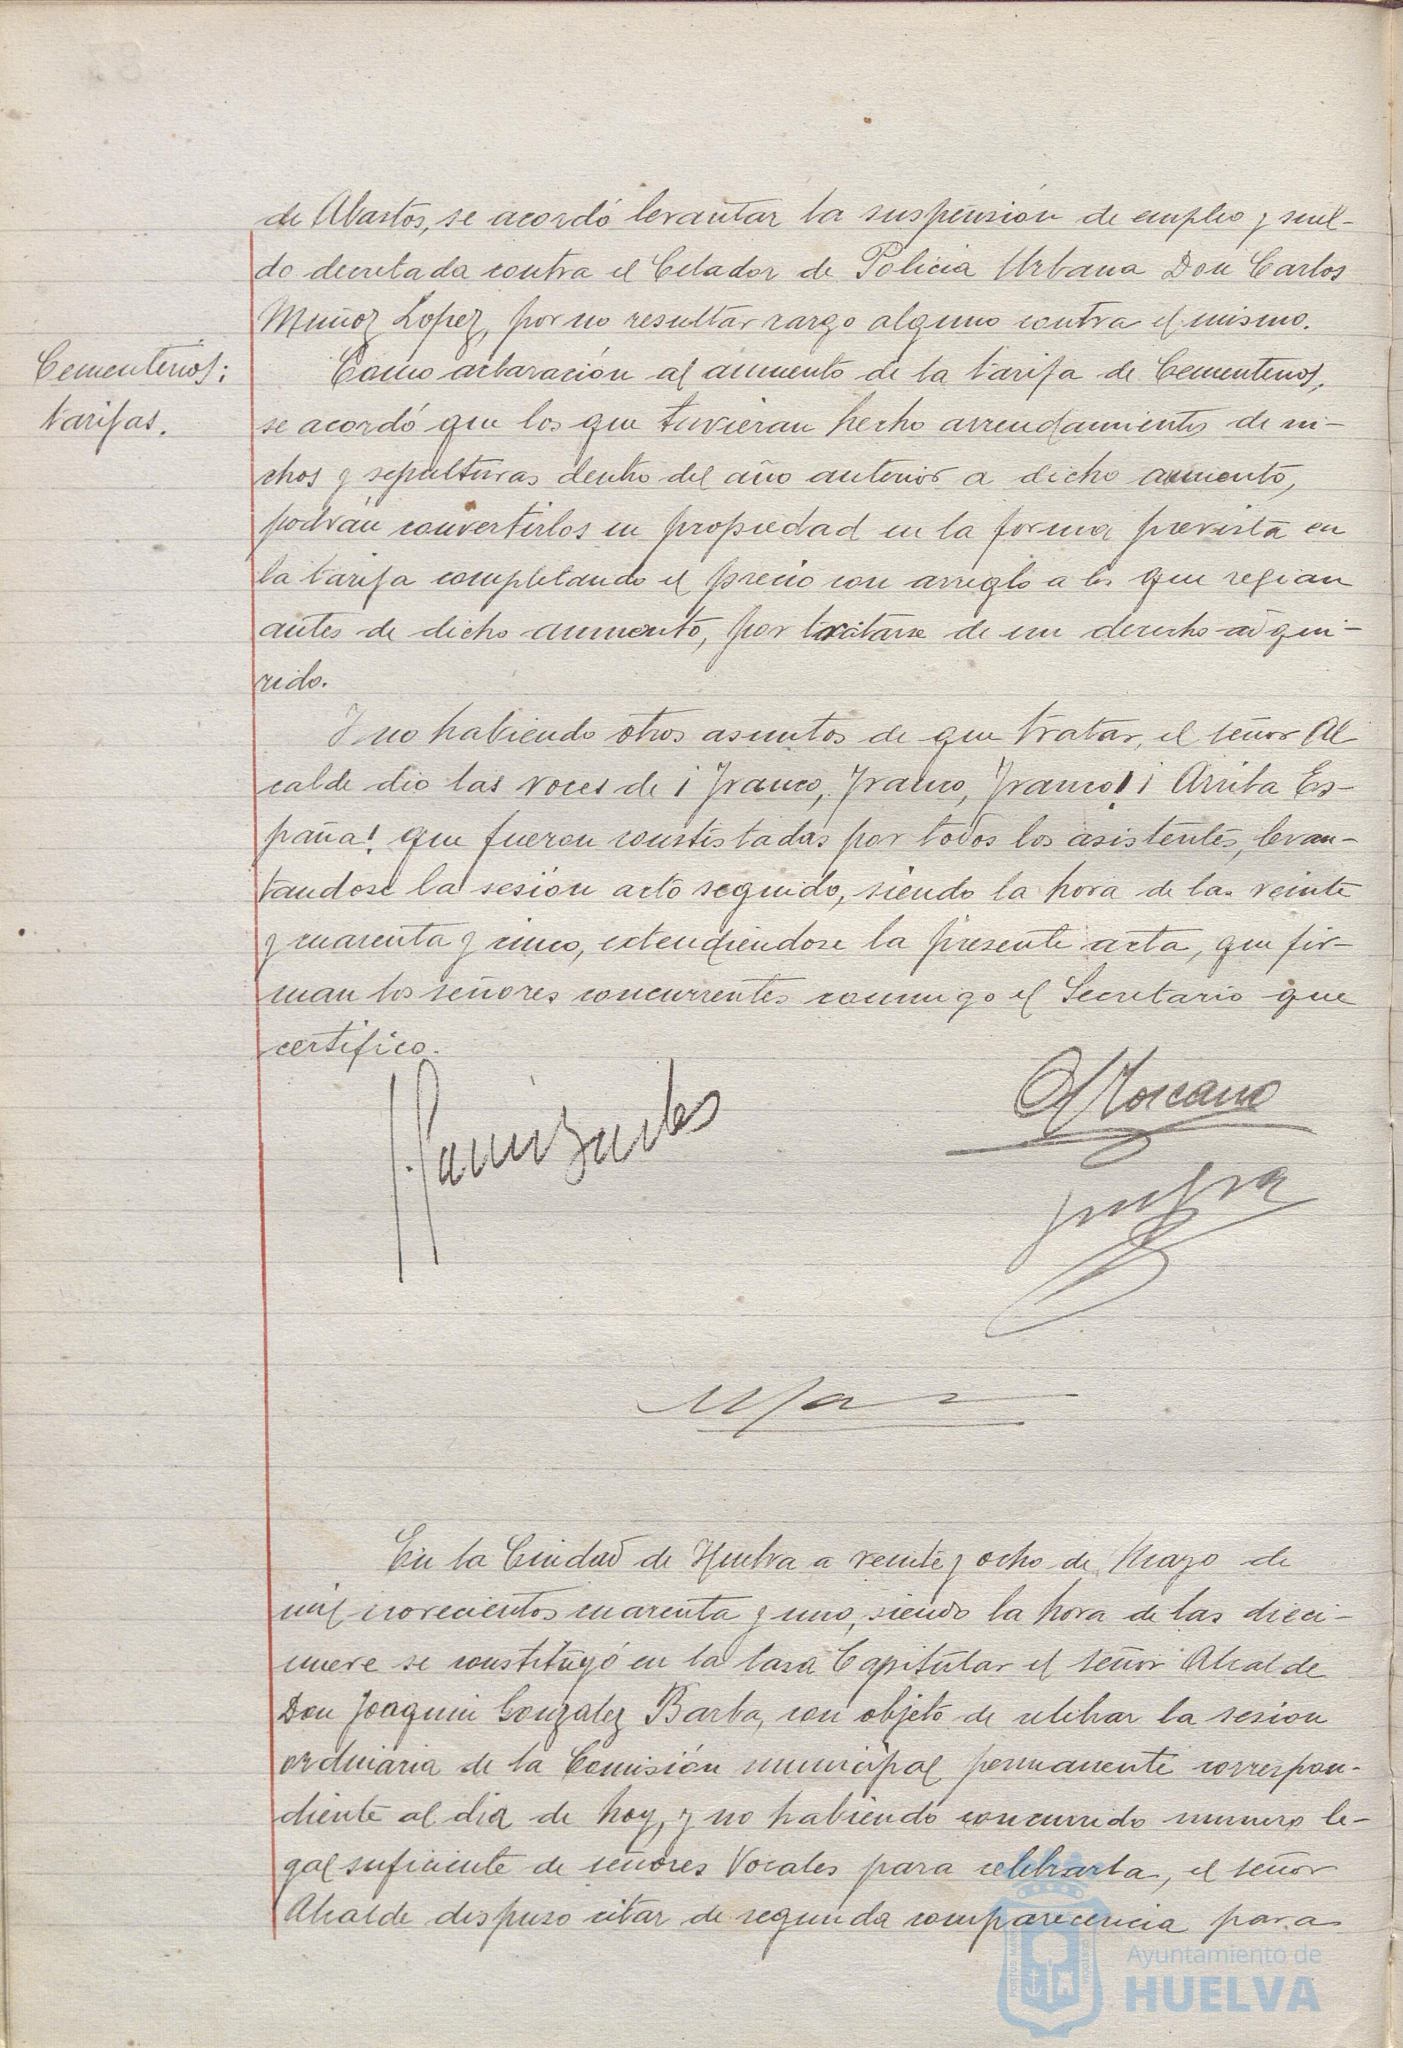 de Abastos, se acordó levantar la suspensión de empleo y suel-
do decretada contra el Celador de Policia Urbana Don Carlos
Muñoz Lopez, por no resultar cargo alguno contra el mismo.
Cementerios;
tarifas.
Como aclaración al aumento de la tarifa de Cementerios,
se acordó que los que tuvieran hecho arrendamientos de ni-
chos y sepulturas dentro del año anterior a dicho aumento,
podrán convertirlos en propiedad en la forma prevista en
la tarifa completando el precio con arreglo a los que regian
antes de dicho aumento, por tratarse de un derecho adqui-
rido.
Y no habiendo otros asuntos de que tratar, el señor Al
calde dio las voces de ¡Franco, Franco, Franco! ¡Arriba Es-
paña! que fueron contestadas por todos los asistentes, levan-
tandose la sesión acto seguido, siendo la hora de las veinte
y cuarenta y cinco, extendiendose la presente acta, que fir-
man los señores concurrentes conmigo el Secretario que
certifico.
En la Ciudad de Huelva a veinte y ocho de Mayo de
mil novecientos cuarenta y uno, siendo la hora de las dieci-
nueve se constituyó en la Casa Capitular el señor Alcalde
Don Joaquin Gonzalez Barba, con objeto de celebrar la sesion
ordinaria de la Comisión municipal permanente correspon-
diente al dia de hoy, y no habiendo concurrido numero le-
gal suficiente de señores Vocales para celebrarla, el señor
Alcalde dispuso citar de segunda comparecencia para
Ayuntamiento de
HUELVA